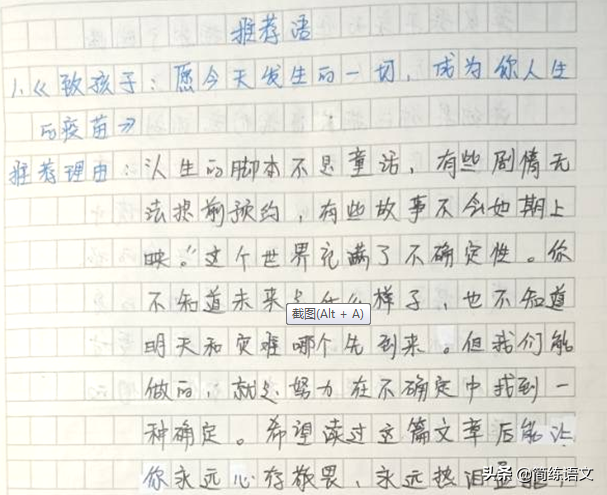 推荐语
1.《致孩子:愿今天发生的一切,成为你人生
的疫苗》
推荐理由:人生的脚本不是童话,有些剧情无
法提前预约,有些故事不会如期上
映。"这个世界充满了不确定性。你
不知道未来是什么样子,也不知道
截图(Alt + A)
明天和灾难哪个先到来。但我们能
做的,就是努力在不确定中找到一
种确定。希望读过这篇文章后能让
你永远心存敬畏,永远热泪盈
头条 @简练语文